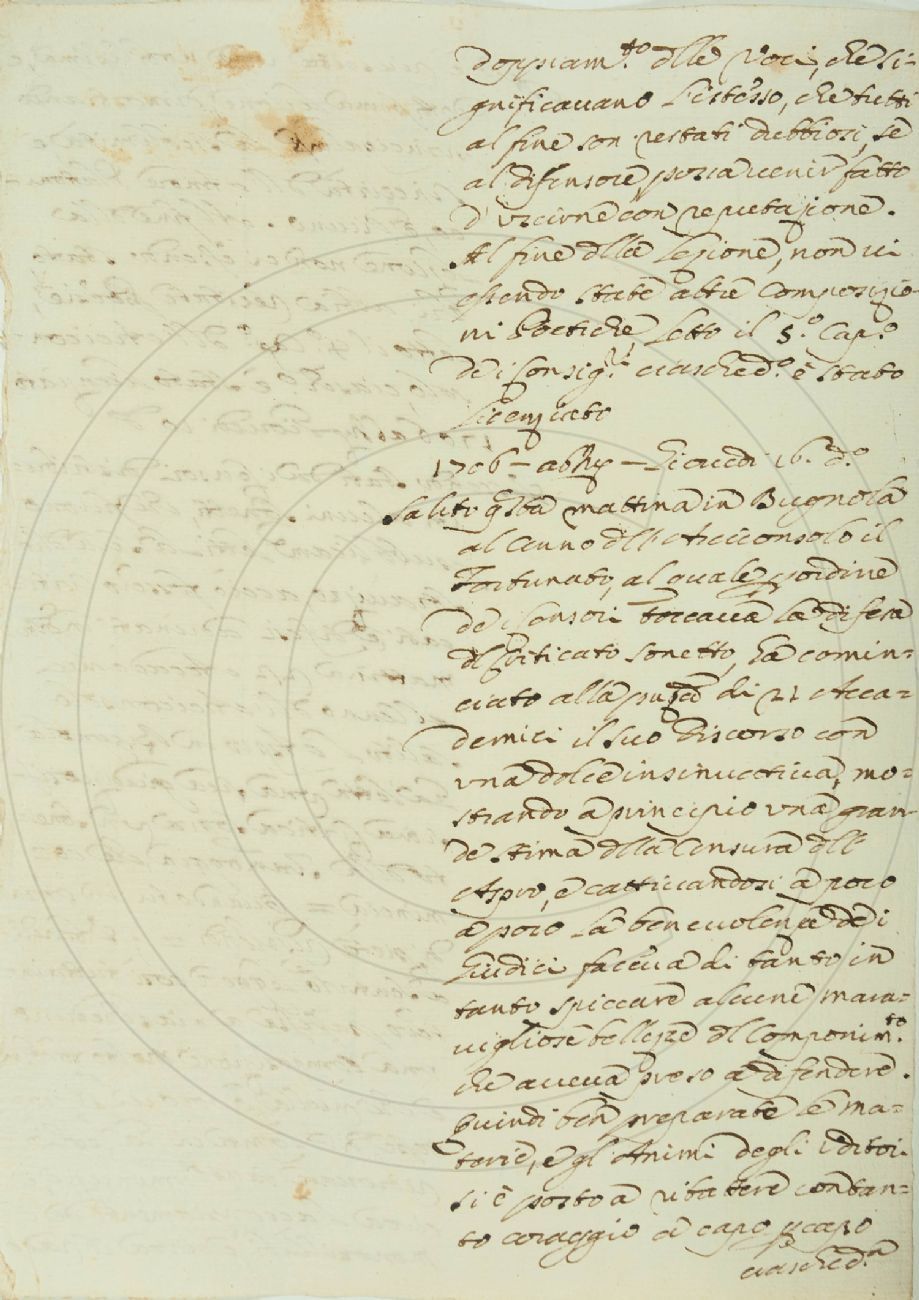 doppiam.to dlle Voci, che si-
gnificavano l'istesso, che tutti
al fine son restati dubbiosi, se
al difensore possa venir fatto
d'uscirne con reputazione.
Al fine dlla lezione, non vi
essendo state altre Composizio
ni Poetiche, letto il 5.o Cap.o
de i Consig.ri ciasched.o è stato
licenziato
1706 - ab Giovedi 16. d.o
Salito qsta mattina in Bugnola
al Cenno dll'Arciconsolo il
Fortunato, al quale p ordine
de i Censori toccava la difesa
dl Criticato Sonetto, ha comin-
ciato alla pnza di 21 Acca-
demici il suo discorso con
una dolce insinuativa, mo-
strando a principio una gran
de stima dlla Censura dll'
Aspro, e cattivandosi a poco
a poco la benevolenza de i
Giudici faceva di tanto in
tanto spiccare alcune mara-
vigliose bellezze dl Componim.to
che aveva preso a difendere.
Quindi ben preparate le ma-
terie, e gl'Animi degli Uditori
si è posto a ributtere con tan-
to coraggio a capo p capo
ciasched.a